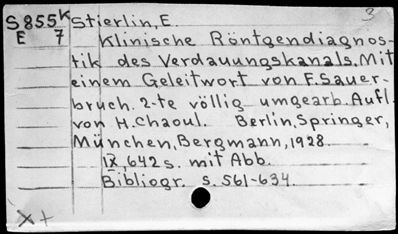 3
S855K Stierlin, E.
E 7 Klinische Röntgendiagnos-
tik des Verdauungskanals. Mit
einem Geleitwort von F. Sauer-
bruch. 2-te völlig umgearb. Aufl.
von H. Chaoul. Berlin, Springer,
München, Bergmann, 1928.
IX 642 s. mit Abb.
Bibliogr. s. 561-634.
X +